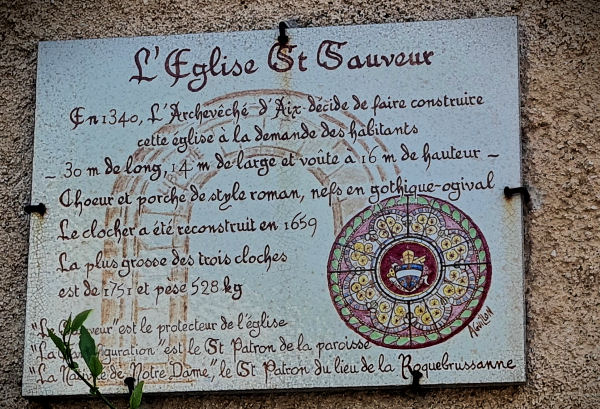 L'Eglise St Sauveur
En 1340, L'Archevêché d'Aix décide de faire construire
cette église à la demande des habitants
- 30 m de long, 14 m de large et voûte à 16 m de hauteur -
Choeur et porche de style roman, nefs en gothique-ogival
Le clocher a été reconstruit en 1659
La plus grosse des trois cloches
est de 1751 et pèse 528 kg
"Le est le protecteur de l'église
"La est le St Patron de la paroisse
"La de Notre Dame", le St Patron du lieu de la Roquebrussanne